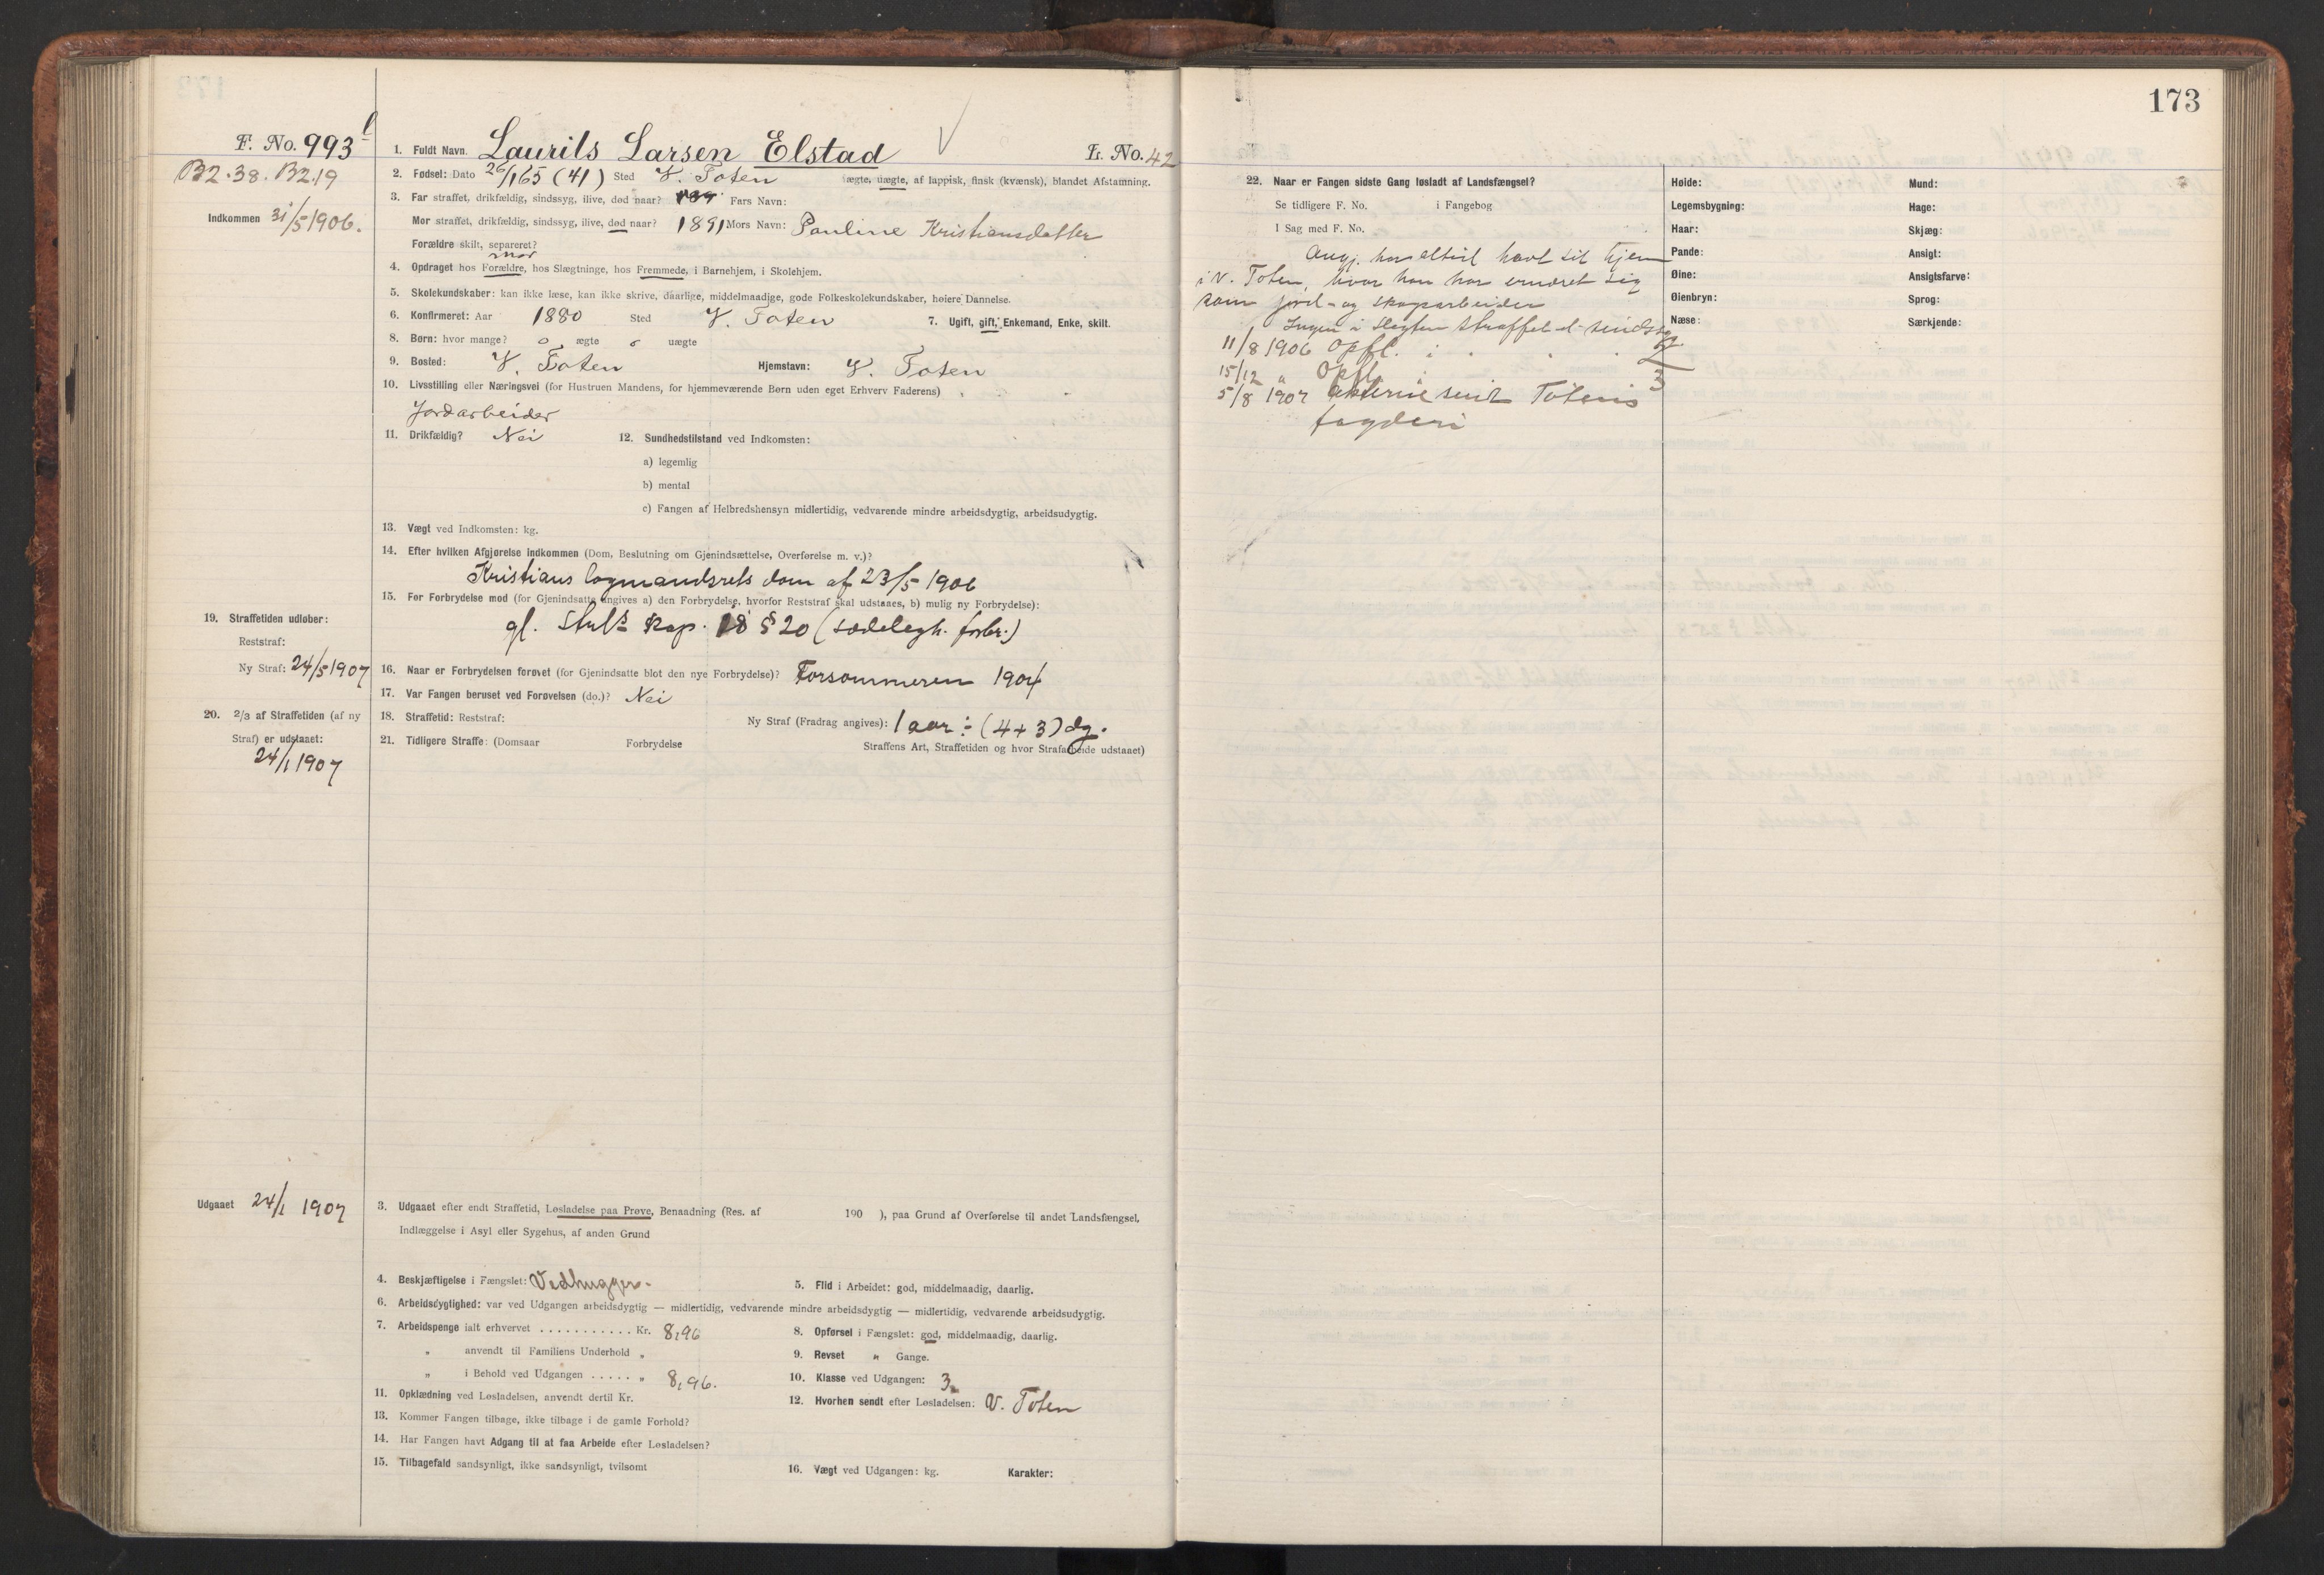 F. No. 993
B2.38. B2.19
Indkommen 31/5 1906.
1. Fuldt Navn. Laurits Larsen Elstad L. No. 42
2. Fødsel: Dato 26/1 65 (41) Sted V. Toten ægte, uægte, af lappisk, finsk (kvænsk), blandet Afstamning.
3. Far straffet, drikfældig, sindssyg, ilive, død naar? Fars Navn:
Mor straffet, drikfældig, sindssyg, ilive, død naar? 1891 Mors Navn: Pauline Kristiansdatter
Forældre skilt, separeret?
mor
4. Opdraget hos Forældre, hos Slægtninge, hos Fremmede, i Barnehjem, i Skolehjem.
5. Skolekundskaber: kan ikke læse, kan ikke skrive, daarlige, middelmaadige, gode Folkeskolekundskaber, høiere Dannelse.
6. Konfirmeret: Aar 1880 Sted V. Toten 7. Ugift, gift, Enkemand, Enke, skilt.
8. Børn: hvor mange? 0 ægte 0 uægte
9. Bosted: V. Toten Hjemstavn: V. Toten
10. Livsstilling eller Næringsvei (for Hustruen Mandens, for hjemmeværende Børn uden eget Erhverv Faderens)
Jordarbeider
11. Drikfældig? Nei 12. Sundhedstilstand ved Indkomsten:
a) legemlig
b) mental
c) Fangen af Helbredshensyn midlertidig, vedvarende mindre arbeidsdygtig, arbeidsudygtig.
13. Vægt ved Indkomsten: kg.
14. Efter hvilken Afgjørelse indkommen (Dom, Beslutning om Gjenindsættelse, Overførelse m. v.)?
Kristians lagmandsrets dom af 23/5 1906
15. For Forbrydelse mod (for Gjenindsatte angives a) den Forbrydelse, hvorfor Reststraf skal udstaaes, b) mulig ny Forbrydelse):
gl. Strfl. Kap. 18 § 20 (sædelegh. forbr.)
19. Straffetiden udløber:
Reststraf:
Ny Straf: 24/5 1907
16. Naar er Forbrydelsen forøvet (for Gjenindsatte blot den nye Forbrydelse)? Forsommeren 1904
17. Var Fangen beruset ved Forøvelsen (do.)? Nei
20. 2/3 af Straffetiden (af ny
Straf) er udstaaet:
24/1 1907
18. Straffetid: Reststraf: Ny Straf (Fradrag angives): 1 aar ÷ (4+3) dg.
21. Tidligere Straffe: (Domsaar Forbrydelse Straffens Art, Straffetiden og hvor Strafarbeide udstaaet)
Udgaaet 24/1 1907
3. Udgaaet efter endt Straffetid, Løsladelse paa Prøve, Benaadning (Res. af 190 ), paa Grund af Overførelse til andet Landsfængsel,
Indlæggelse i Asyl eller Sygehus, af anden Grund
4. Beskjæftigelse i Fængslet: Vedhugger. 5. Flid i Arbeidet: god, middelmaadig, daarlig.
6. Arbeidsdygtighed: var ved Udgangen arbeidsdygtig — midlertidig, vedvarende mindre arbeidsdygtig — midlertidig, vedvarende arbeidsudygtig.
7. Arbeidspenge ialt erhvervet . . . . . . . . . . . Kr. 8,96 8. Opførsel i Fængslet: god, middelmaadig, daarlig.
„ anvendt til Familiens Underhold „ 9. Revset „ Gange.
„ i Behold ved Udgangen . . . . . „ 8,96. 10. Klasse ved Udgangen: 3
11. Opklædning ved Løsladelsen, anvendt dertil Kr. 12. Hvorhen sendt efter Løsladelsen: V. Toten
13. Kommer Fangen tilbage, ikke tilbage i de gamle Forhold?
14. Har Fangen havt Adgang til at faa Arbeide efter Løsladelsen?
15. Tilbagefald sandsynligt, ikke sandsynligt, tvilsomt 16. Vægt ved Udgangen: kg. Karakter:
173
22. Naar er Fangen sidste Gang løsladt af Landsfængsel?
Se tidligere F. No. i Fangebog
I Sag med F. No.
Angj. har altid havt sit hjem
i V. Toten, hvor han har ernæret sig
som jord- og skogsarbeider
Ingen i slegten straffet el. sindssyg.
11/8 1906 Opfl. i
15/12 „ Opfl.
5/8 1907 akterne sendt Totens
fogderi
Høide: Mund:
Legemsbygning: Hage:
Haar: Skjæg:
Pande: Ansigt:
Øine: Ansigtsfarve:
Øienbryn: Sprog:
Næse: Særkjende: